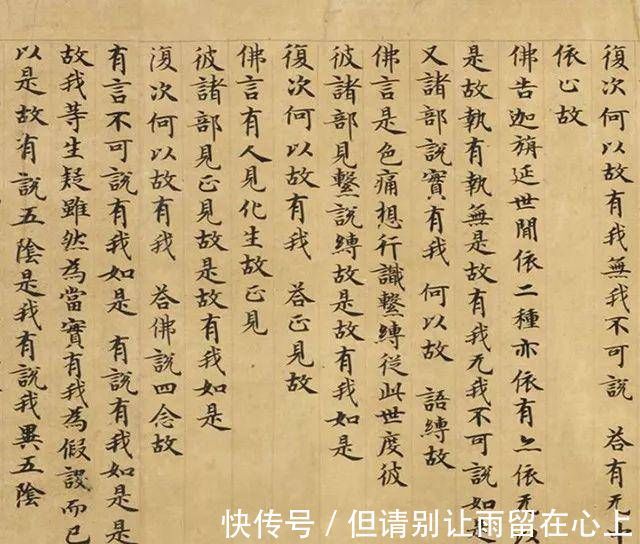 復次何以故有我無我不可說　荅有无二
依止故
佛告迦旃延世間依二種亦依有亦依无
是故執有執無是故有我无我不可說如是
又諸部說實有我　何以故　語縛故
佛言是色痛想行識繫縛從此世度彼
彼諸部見繫說縛故是故有我如是
復次何以故有我　荅正見故
佛言有人見化生故正見
彼諸部見正見故是故有我如是
復次何以故有我　荅佛說四念故
有言不可說有我如是　有說有我如是是
故我等生疑雖然為當實有我為假設而已
以是故有說五陰是我有說我異五陰
快传号/但请别让雨留在心上